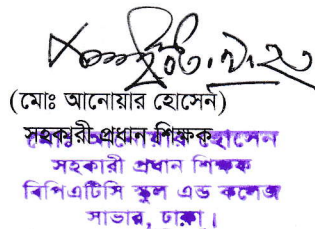 (মোঃ আনোয়ার হোসেন)
সহকারী প্রধান শিক্ষক
মোঃ আনোয়ার হোসেন
সহকারী প্রধান শিক্ষক
বিপিএটিসি স্কুল এন্ড কলেজ
সাভার, ঢাকা।